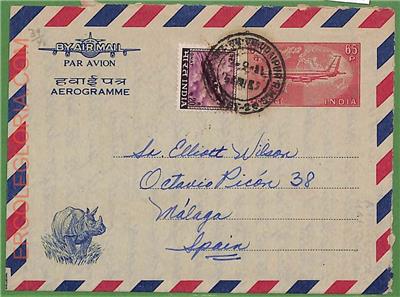 BY AIR MAIL
PAR AVION
हवाई पत्र
AEROGRAMME
भारत INDIA
65
P
INDIA
Sr. Elliott Wilson
Octavio Picón 38
Málaga
Spain
ERGOFILATELIA.COM